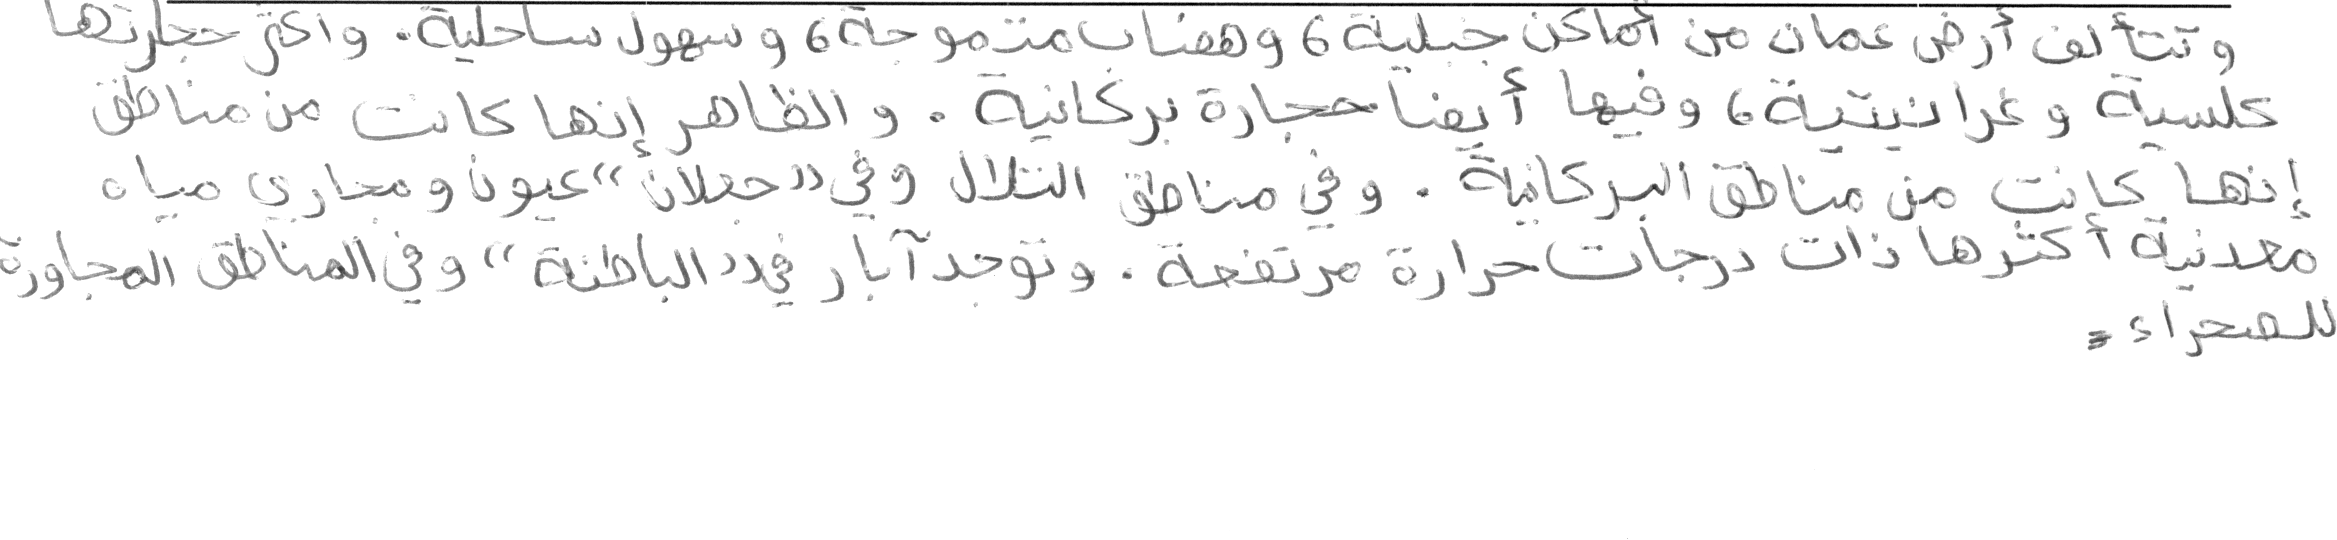 وتتألف أرض عمان من أماكن جبلية، وهضاب متموجة، وسهول ساحلية. واكثر حجارتها
كلسية وغرانيتية، وفيها أيضا حجارة بركانية. والظاهر إنها كانت من مناطق
إنها كانت من مناطق البركانية. وفي مناطق التلال وفي "جعلان" عيون ومجاري مياه
معدنية أكثرها ذات درجات حرارة مرتفعة. وتوجد آبار في "الباطنة" وفي المناطق المجاورة
للصحراء.